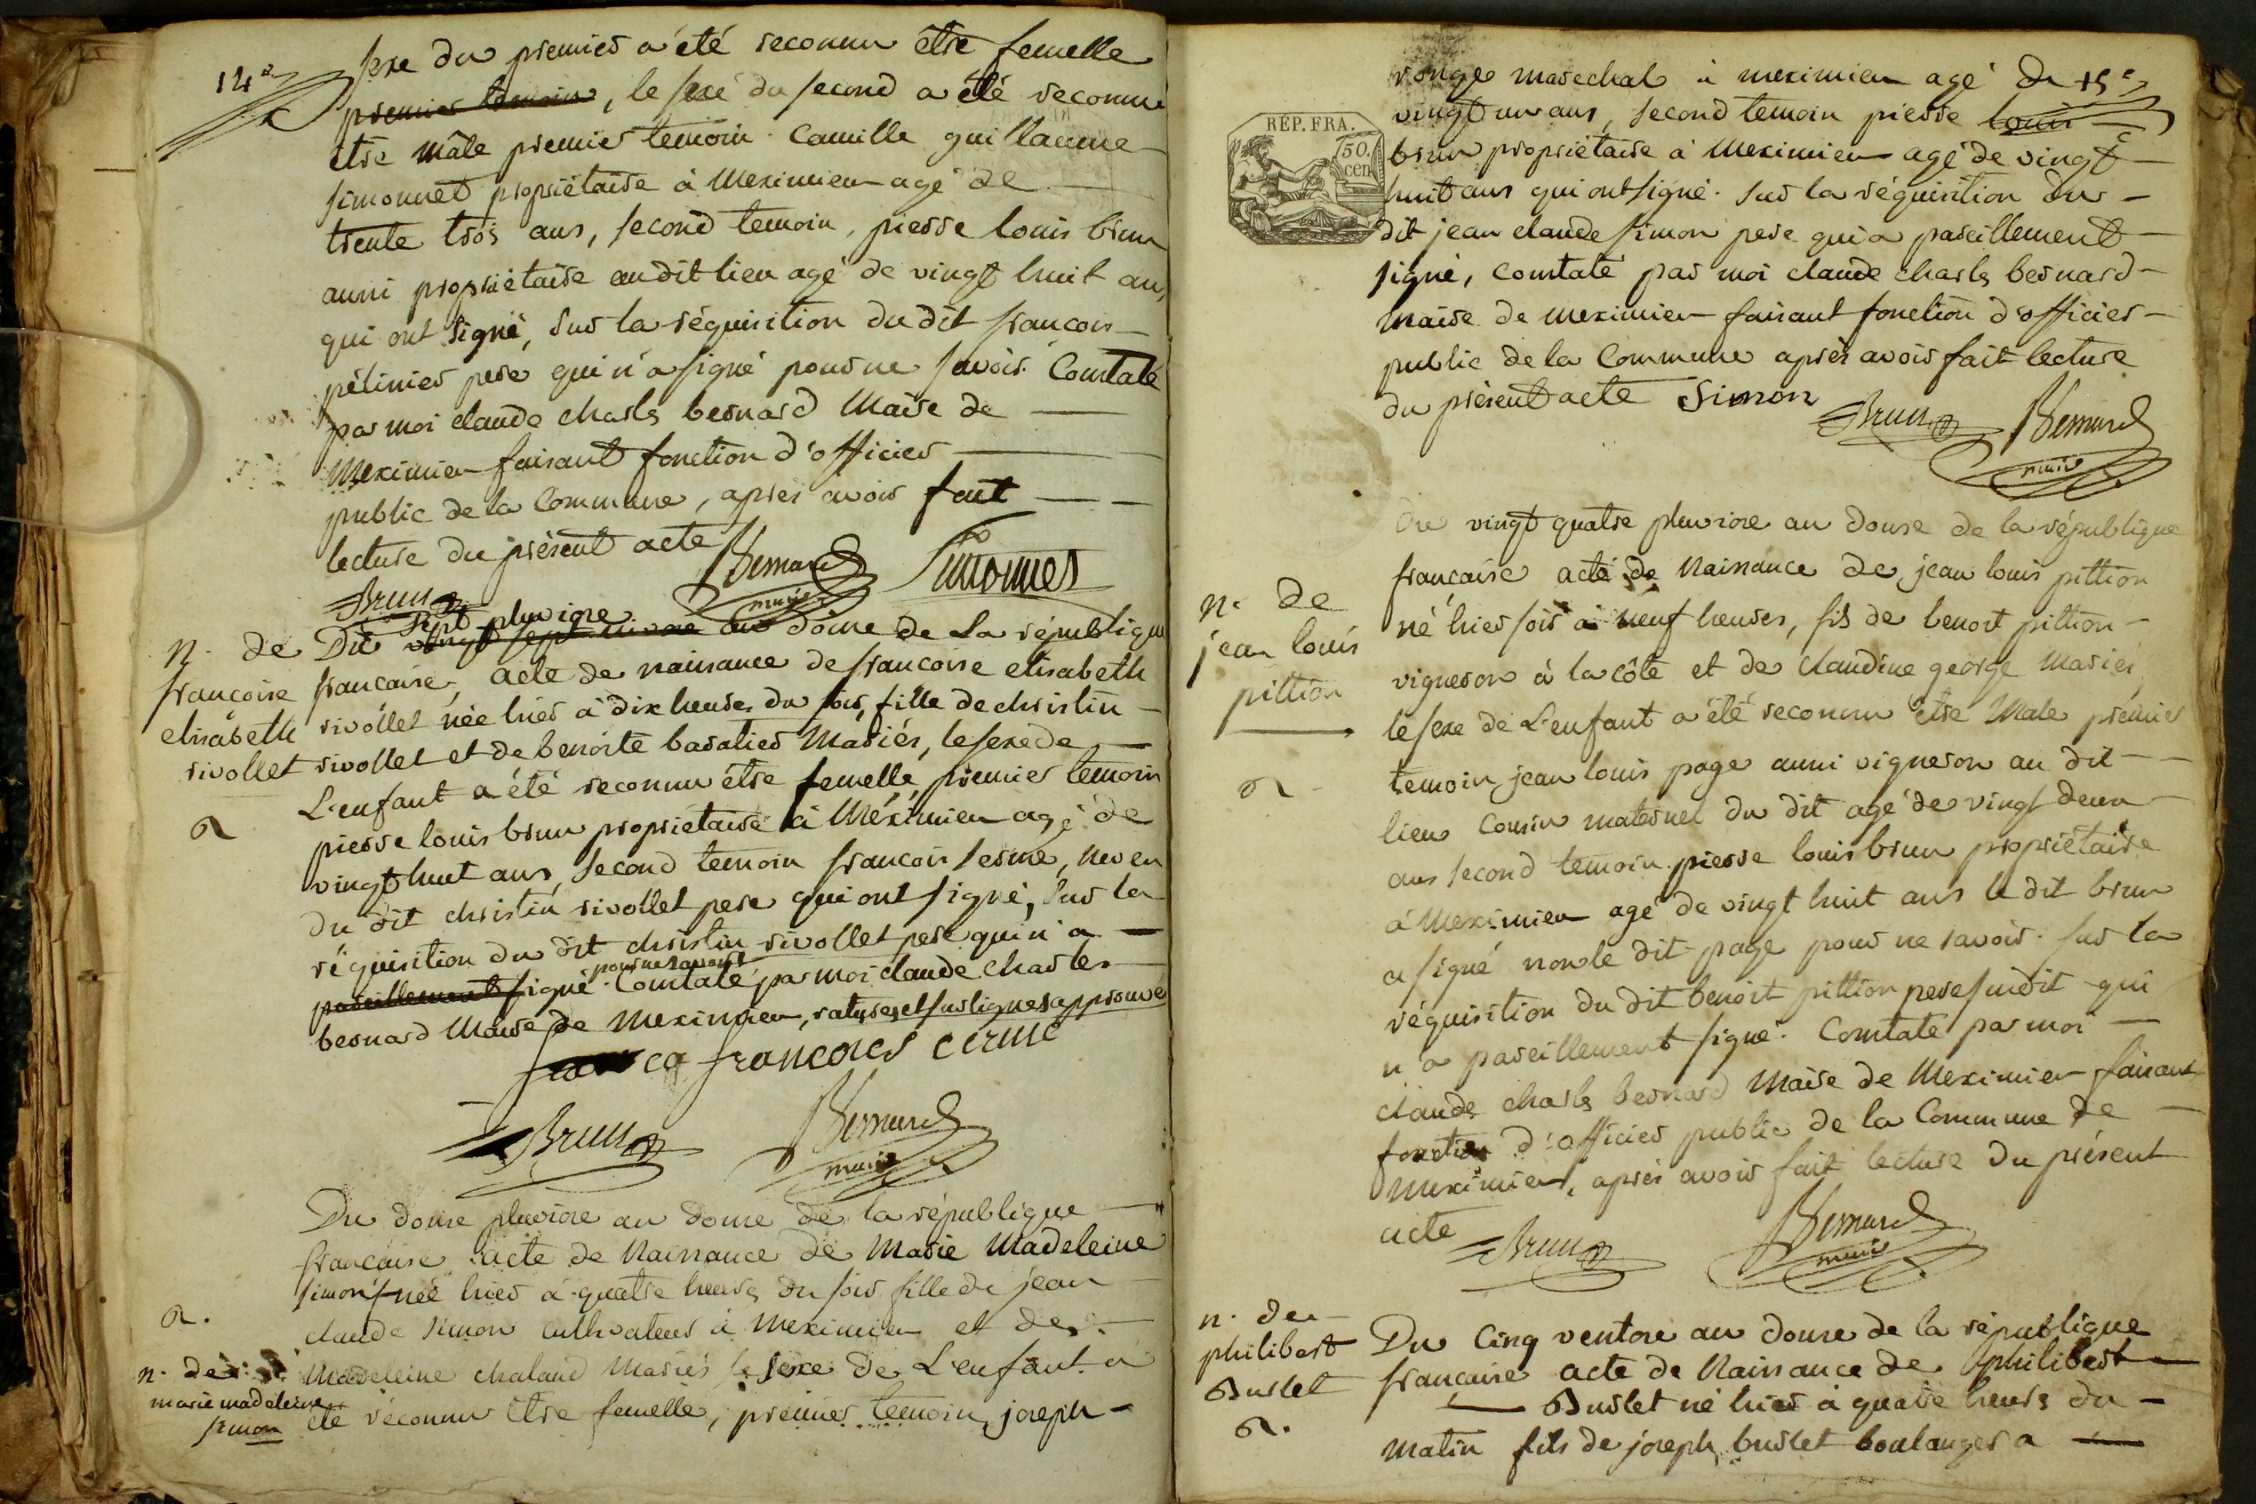 14e
sexe du premier a été reconnu être femelle
premier temoin, le sexe du second a été reconnu
être mâle premier temoin Camille guillaume
simonnet propriétaire à Meximieu agé de
trente trois ans, second temoin, pierre louis brun
aussi propriétaire au dit lieu agé de vingt huit ans,
qui ont signé, Sur la réquisition du dit francois
pélinier pere qui n'a signé pour ne savoir. Constaté
par moi claude charles bernard Maire de
Meximieu faisant fonction d'officier
public de la Commune, apres avoir fait
lecture du présent acte
Bernard
maire
Simonnet
Brun
sept pluviose
n. de
francoise
elisabeth
rivollet
Du vingt sept nivose an douse de La république
francaise, acte de naissance de francoise elisabeth
rivollet née hier à dix heures du soir, fille de christin
rivollet et de benoite baratier Mariés, le sexe de
L'enfant a été reconnu être femelle, premier temoin
pierre louis brun propriétaire à Méximieu agé de
vingt huit ans, second temoin francois serme, neveu
du dit christin rivollet pere qui ont signé, Sur la
réquisition du dit christin rivollet pere qui n'a
pour ne savoir
pareillement signé. Constaté par moi claude charles
bernard Maire de Meximieu, ratures et sur lignes approuvé
francois cerme
Brun
Bernard
maire
Du douse pluviose an douse de la république
francaise acte de Naissance de Marie Madeleine
simon née hier à quatre heures du soir fille de jean
claude simon cultivateur à Meximieu et de
Madeleine chaland Mariés le sexe de L'enfant a
été reconnu être femelle, premier temoin joseph
n. de
marie madeleine
simon
15e
ronge marechal à meximieu agé de
vingt un ans, second temoin pierre louis
brun propriétaire à Meximieu agé de vingt
huit ans qui ont signé. Sur la réquisition du
dit jean claude simon pere qui a pareillement
signé, constaté par moi claude charles bernard
Maire de meximieu faisant fonction d'officier
public de la Commune après avoir fait lecture
du présent acte Simon
Brun
Bernard
maire
RÉP. FRA.
50.
cen
n. de
jean louis
pittion
Du vingt quatre pluviose an douse de la république
francaise acte de Naissance de jean louis pittion
né hier soir à neuf heures, fils de benoit pittion
vigneron à la côte et de claudine george Mariés
le sexe de L'enfant a été reconnu être Mâle premier
temoin jean louis page aussi vigneron au dit
lieu Cousin maternel du dit agé de vingt deux
ans second temoin pierre louis brun propriétaire
à Meximieu agé de vingt huit ans le dit brun
a signé non le dit page pour ne savoir. Sur la
réquisition du dit benoit pittion pere susdit qui
n'a pareillement signé. Constaté par moi
claude charles bernard Maire de Meximieu faisant
fonction d'officier public de la Commune de
meximieu, après avoir fait lecture du présent
acte
Brun
Bernard
maire
n. de
philibert
Burlet
Du Cinq ventose an douse de la république
francaise acte de Naissance de philibert
Burlet né hier à quatre heures du
matin fils de joseph burlet boulanger a